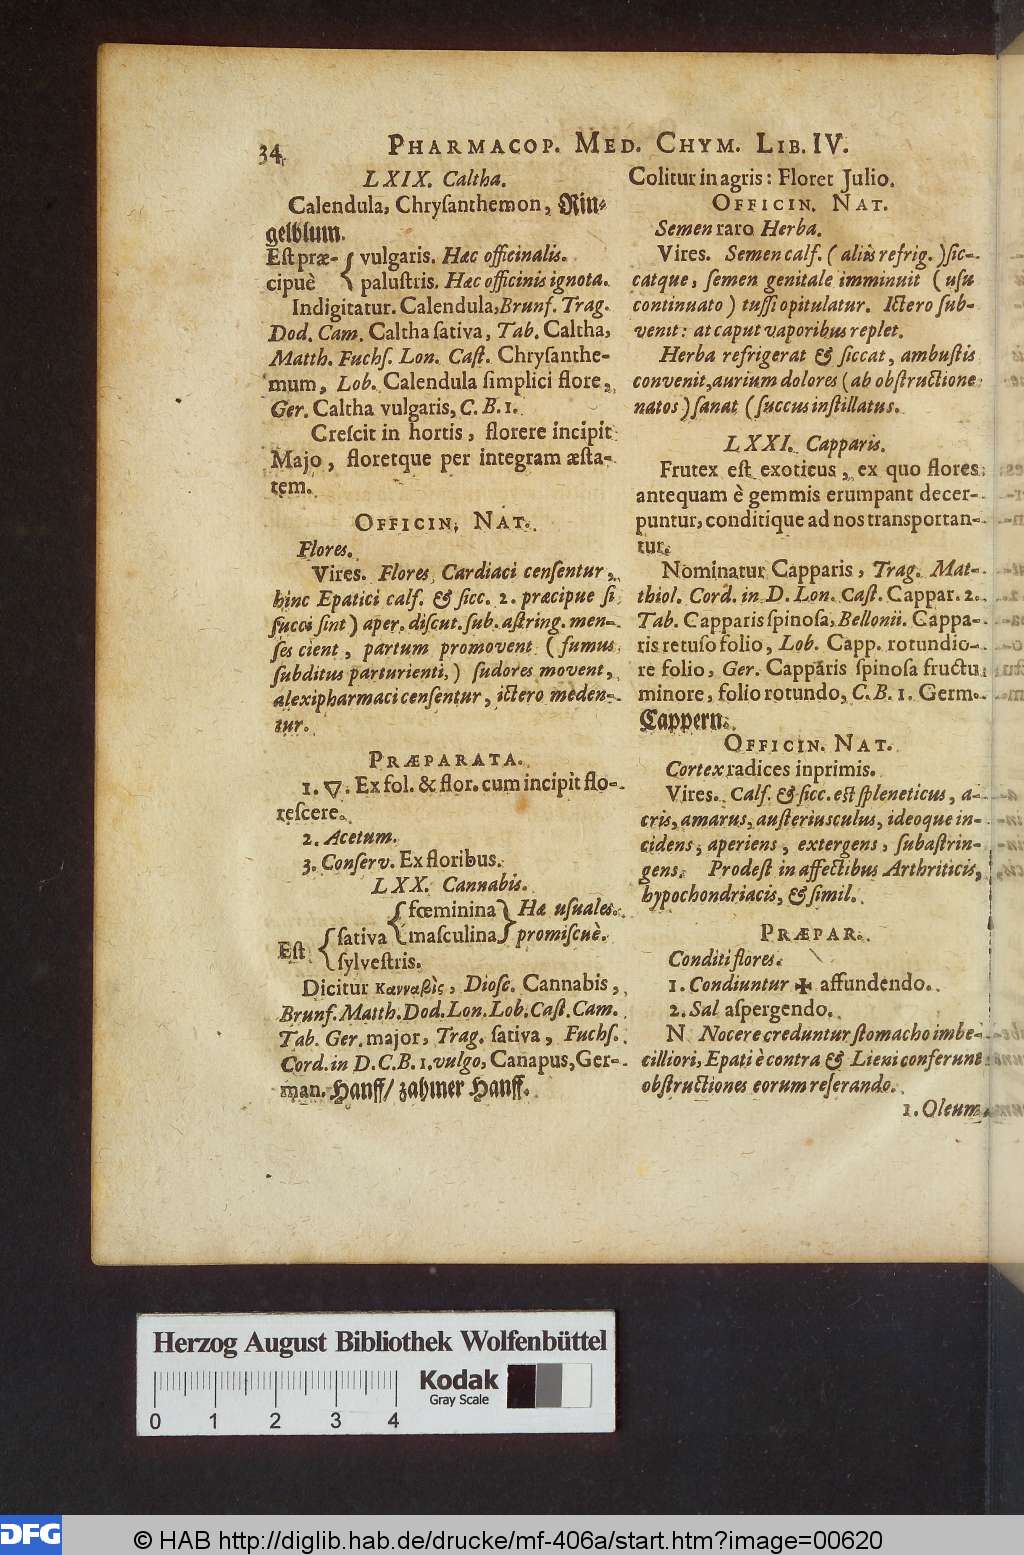 34
PHARMACOP. MED. CHYM. LIB. IV.
LXIX. Caltha.
Calendula, Chryſanthemon, Rin⸗
gelblum.
Eſt præ- { vulgaris. Hæc officinalis.
cipuè { paluſtris. Hæc officinis ignota.
Indigitatur. Calendula, Brunf. Trag.
Dod. Cam. Caltha ſativa, Tab. Caltha,
Matth. Fuchſ. Lon. Caſt. Chryſanthe-
mum, Lob. Calendula ſimplici flore,
Ger. Caltha vulgaris, C. B. 1.
Creſcit in hortis, florere incipit
Majo, floretque per integram æſta-
tem.
OFFICIN. NAT.
Flores.
Vires. Flores Cardiaci cenſentur,
hinc Epatici calf. & ſicc. 2. præcipue ſi
ſucci ſint) aper. diſcut. ſub. aſtring. men-
ſes cient, partum promovent (fumus
ſubditus parturienti,) ſudores movent,
alexipharmaci cenſentur, ictero meden-
tur.
PRÆPARATA.
1. ▽. Ex fol. & flor. cum incipit flo-
reſcere.
2. Acetum.
3. Conſerv. Ex floribus.
LXX. Cannabis.
{ fœminina } Hæ uſuales
Eſt { ſativa { maſculina } promiſcuè.
{ ſylveſtris.
Dicitur κανναβὶς, Dioſc. Cannabis,
Brunf. Matth. Dod. Lon. Lob. Caſt. Cam.
Tab. Ger. major, Trag. ſativa, Fuchſ.
Cord. in D. C. B. 1. vulgo, Canapus, Ger-
man. Hanff/ zahmer Hanff.
Colitur in agris: Floret Julio.
OFFICIN. NAT.
Semen raro Herba.
Vires. Semen calf. (aliis refrig.) ſic-
catque, ſemen genitale imminuit (uſu
continuato) tuſſi opitulatur. Ictero ſub-
venit: at caput vaporibus replet.
Herba refrigerat & ſiccat, ambuſtis
convenit, aurium dolores (ab obſtructione
natos) ſanat (ſuccus inſtillatus.
LXXI. Capparis.
Frutex eſt exoticus, ex quo flores
antequam è gemmis erumpant decer-
puntur, conditique ad nos transportan-
tur.
Nominatur Capparis, Trag. Mat-
thiol. Cord. in D. Lon. Caſt. Cappar. 2.
Tab. Capparis ſpinoſa, Bellonii. Cappa-
ris retuſo folio, Lob. Capp. rotundio-
re folio, Ger. Capparis ſpinoſa fructu
minore, folio rotundo, C. B. 1. Germ.
Cappern.
OFFICIN. NAT.
Cortex radices inprimis.
Vires. Calf. & ſicc. eſt ſpleneticus, a-
cris, amarus, auſteriusculus, ideoque in-
cidens, aperiens, extergens, ſubaſtrin-
gens. Prodeſt in affectibus Arthriticis,
hypochondriacis, & ſimil.
PRÆPAR.
Conditi flores.
1. Condiuntur ✠ affundendo.
2. Sal aſpergendo.
N Nocere creduntur ſtomacho imbe-
cilliori, Epati è contra & Lieni conferunt
obſtructiones eorum reſerando.
1. Oleum
Herzog August Bibliothek Wolfenbüttel
0 1 2 3 4
Kodak
Gray Scale
DFG
© HAB http://diglib.hab.de/drucke/mf-406a/start.htm?image=00620